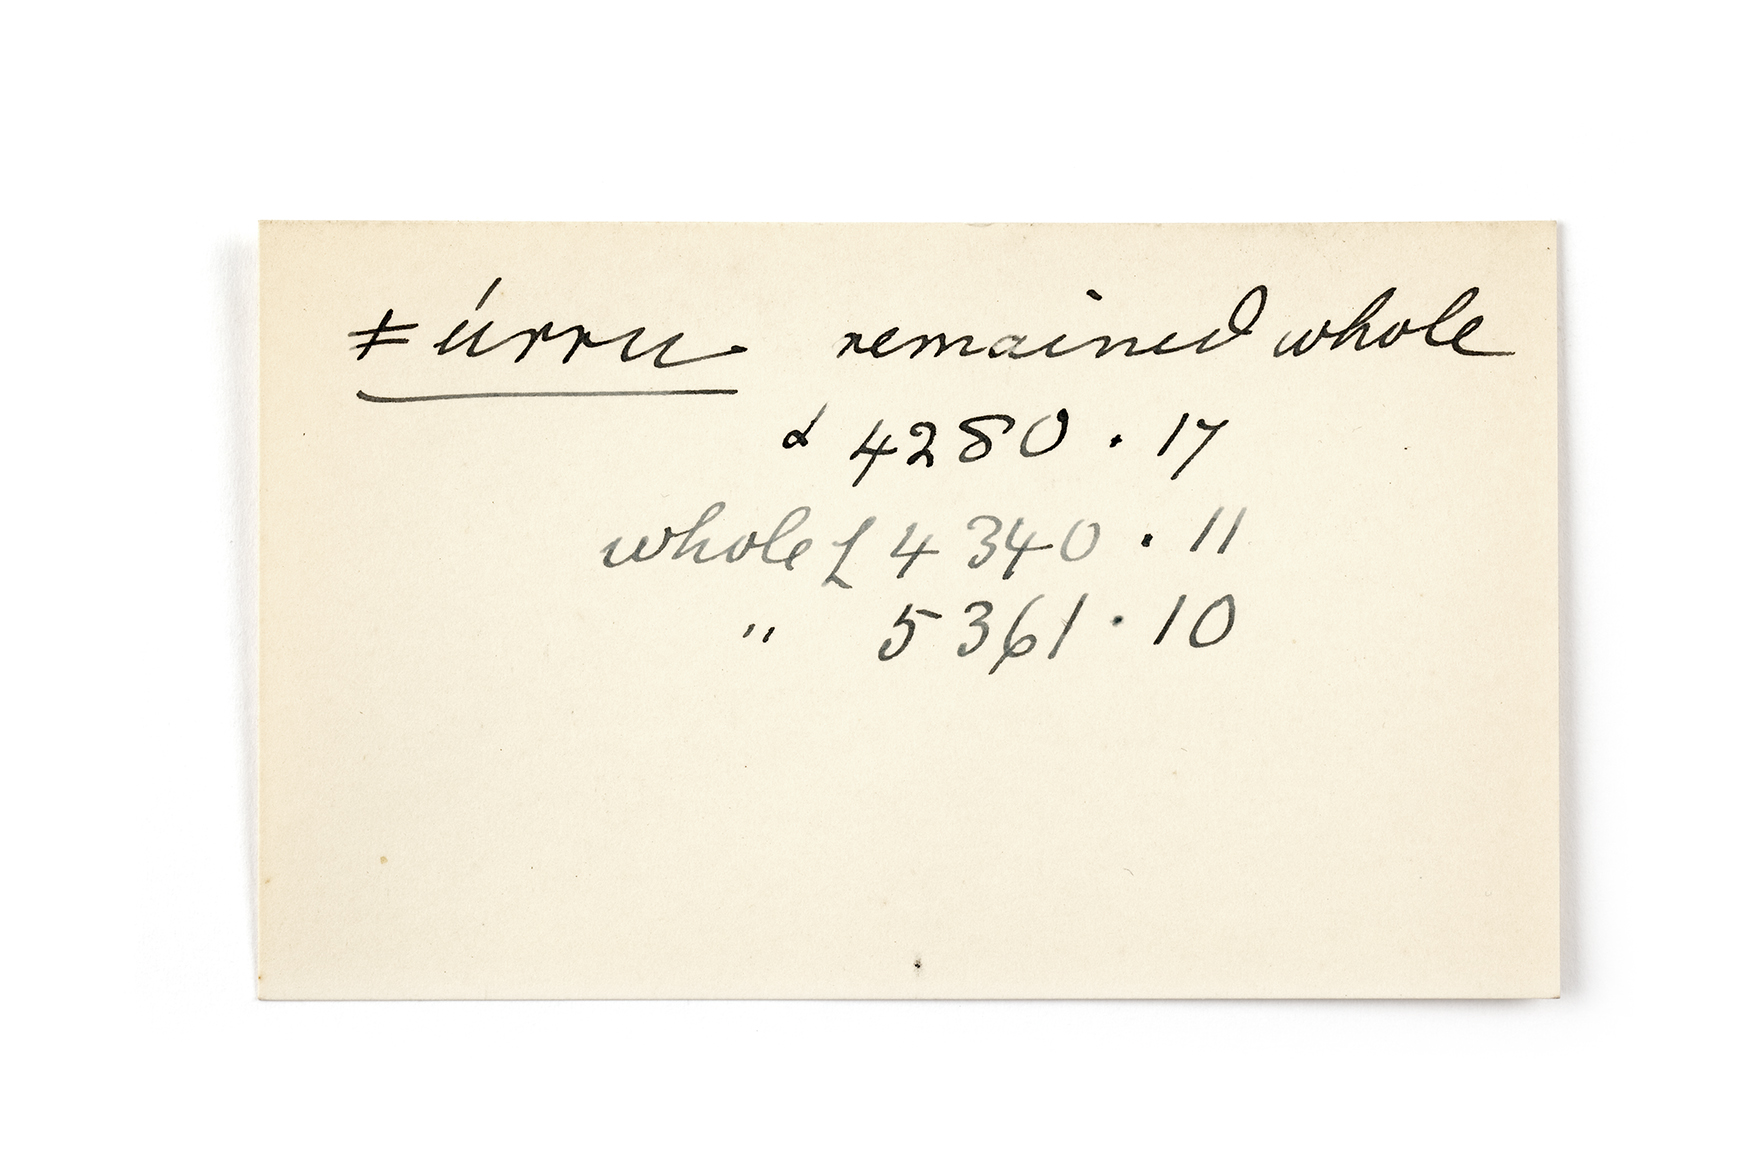 ǂúrru remained whole
d 4280 . 17
whole L 4340 . 11
" 5361 . 10